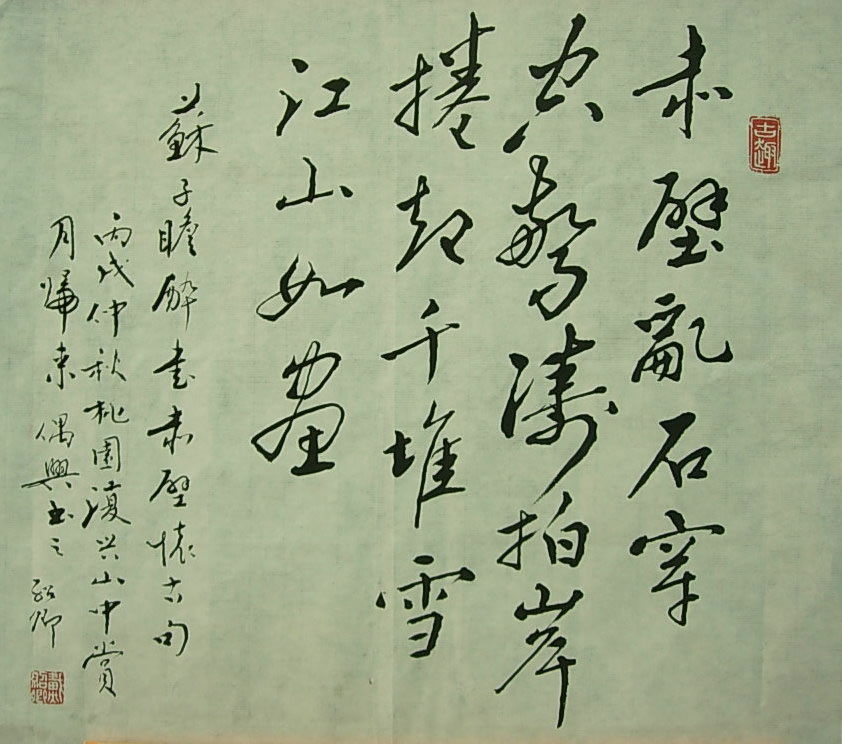 古趣
赤壁亂石穿
空驚濤拍岸
捲起千堆雪
江山如畫
蘇子瞻醉書赤壁懷古句
丙戌仲秋桃園復兴山中賞
月歸来偶興书之 紹卿